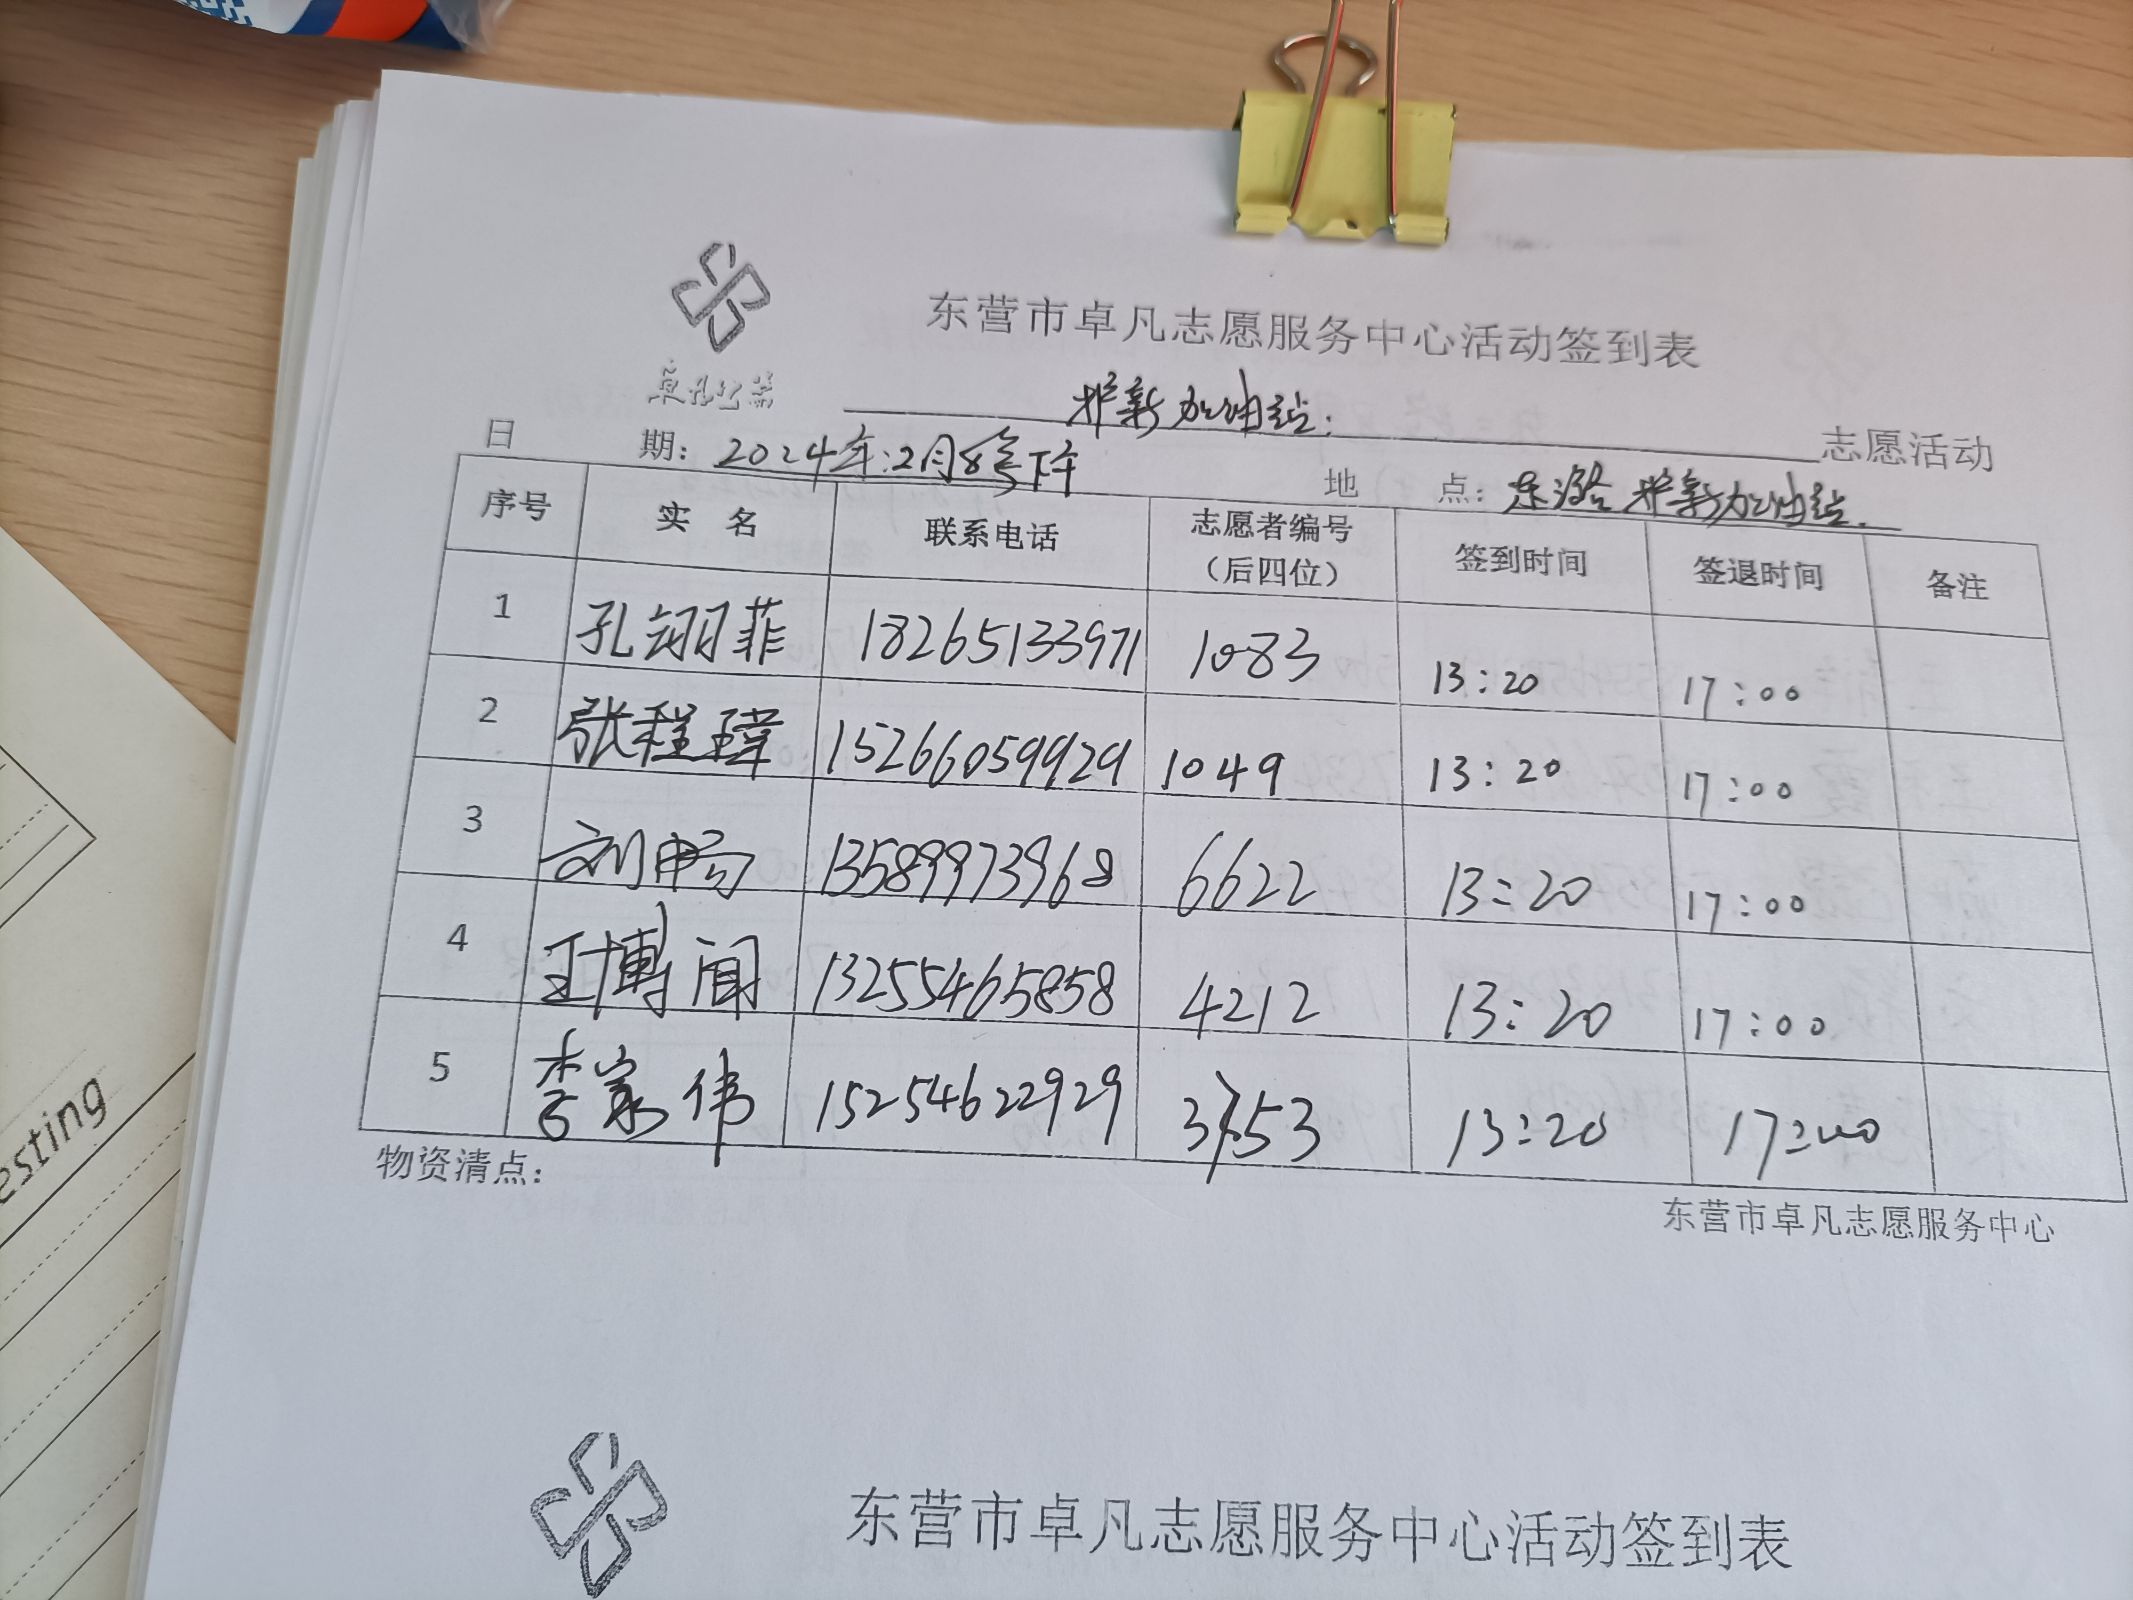 东营市卓凡志愿服务中心活动签到表
卓凡公益
新加油站: 志愿活动
日 期: 2024年:2月8号下午 地 点: 东 新加油站.
序号 实 名 联系电话 志愿者编号(后四位) 签到时间 签退时间 备注
1 孔翊菲 18265133971 1083 13:20 17:00
2 张程瑋 15266059929 1049 13:20 17:00
3 刘畅 13589973968 6622 13:20 17:00
4 王博闻 13255465858 4212 13:20 17:00
5 李家伟 15254622929 3753 13:20 17:00
物资清点:
东营市卓凡志愿服务中心
esting
东营市卓凡志愿服务中心活动签到表